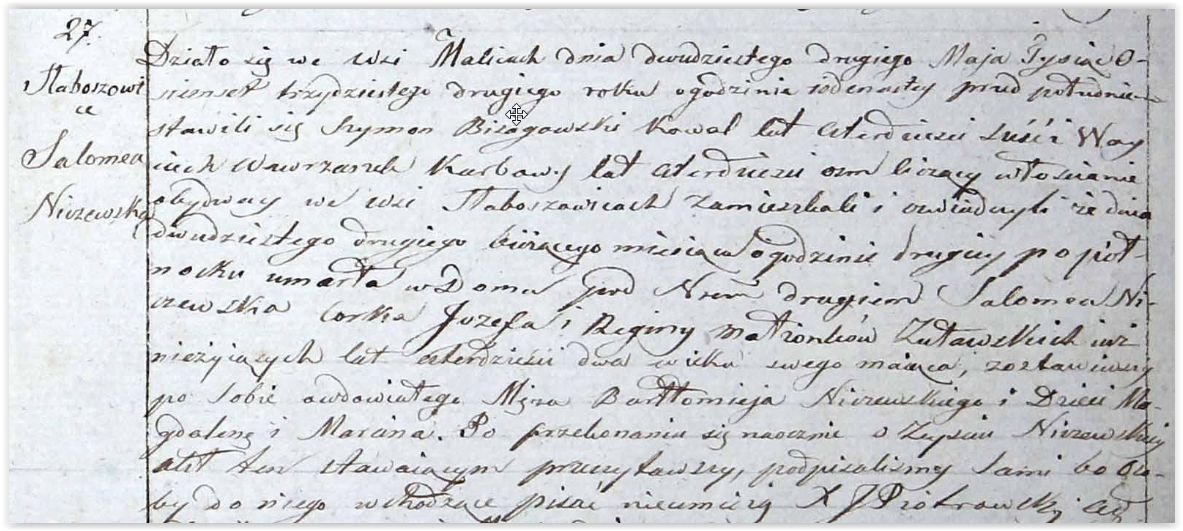 27.
Słaboszowi
ce
Salomea
Niczewska
Działo się we wsi Malicach dnia dwudziestego drugiego Maja Tysiąc O-
siemset trzydziestego drugiego roku o godzinie iedenastey przed południem
stawili się Szymon Kowal lat czterdzieści sześć i Woy
ciech Wawrzaszek Karbowy lat czterdzieści osm liczący włościanie
obydway we wsi Słaboszowicach zamieszkali i oświadczyli że dnia
dwudziestego drugiego bieżącego miesiąca o godzinie drugiey po pół-
nocku umarła w Domu pod Nrem drugiem Salomea Ni-
czewska corka Jozefa i Reginy małżonków Żuławskich iuż
nieżyiących lat czterdzieści dwa wieku swego maiąca, zostawiwszy
po sobie owdowiałego Męża Bartłomieja Niczewskiego i Dzieci Ma-
gdalenę i Marcina. Po przekonaniu się naocznie o Zeyściu Niczewskiey
akt ten stawaiącym przeczytawszy, podpisaliśmy Sami bo Oso-
by do niego wchodzące pisać nieumieią X J Piotrowski